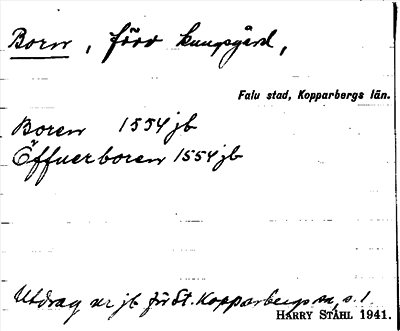 Boren, förv kungsgård,
Falu stad, Kopparbergs län.
Boren 1554 jb
Öffuerboren 1554 jb
Utdrag ur jb för St. Kopparbergs sn, s. 1.
HARRY STÅHL 1941.